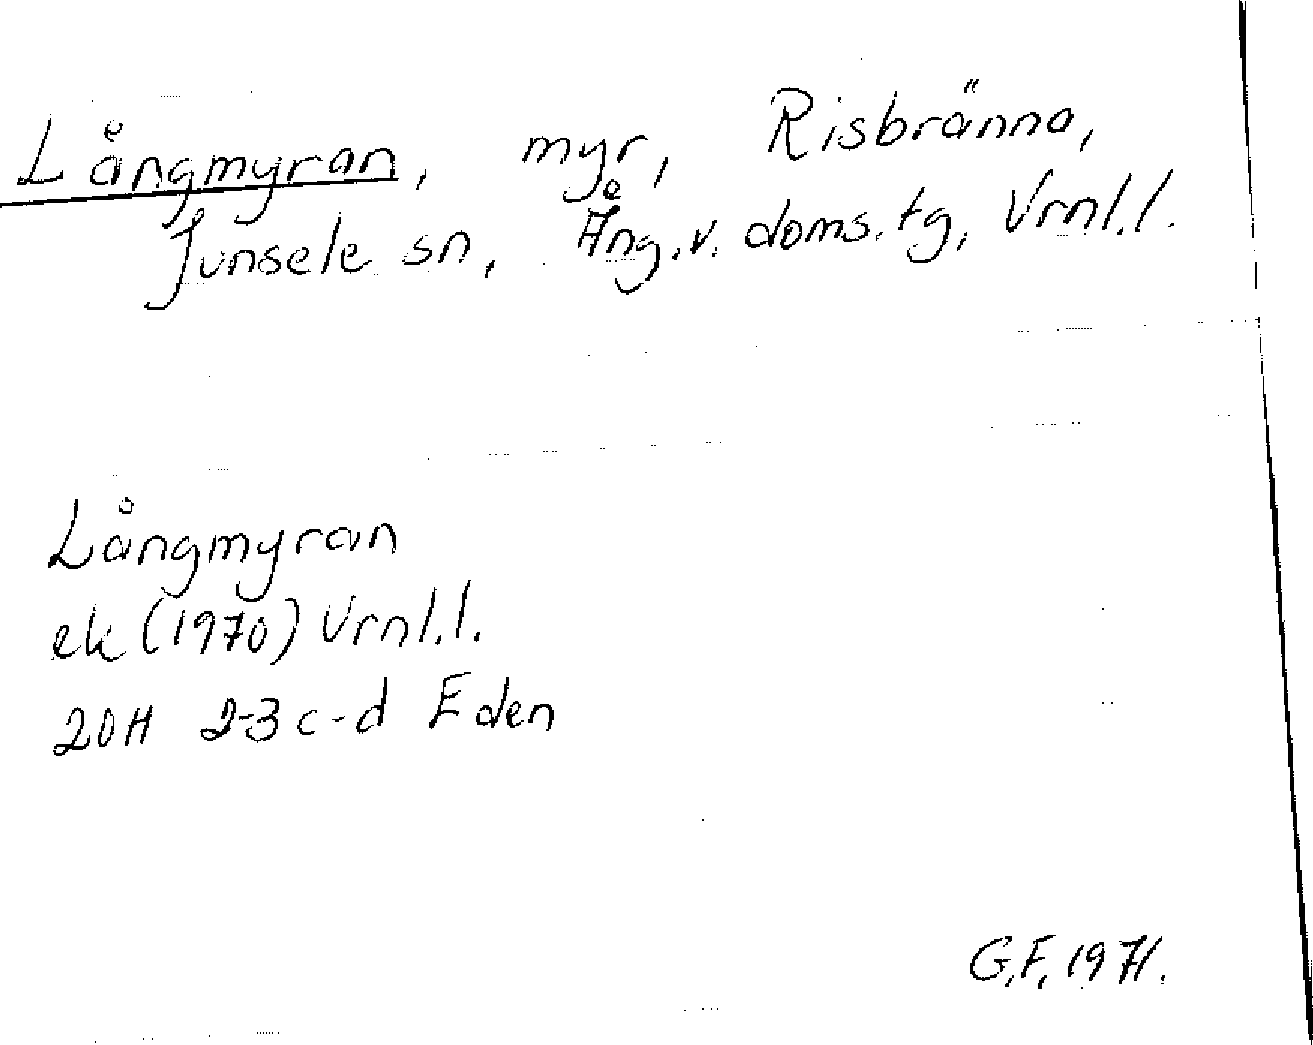 Långmyran, myr, Risbränna,
Junsele sn, Ång.v. doms.tg, Vrnl.l.
Långmyran
ek (1970) Vrnl.l.
20H 2-3 c-d Eden
G.F. 1971.